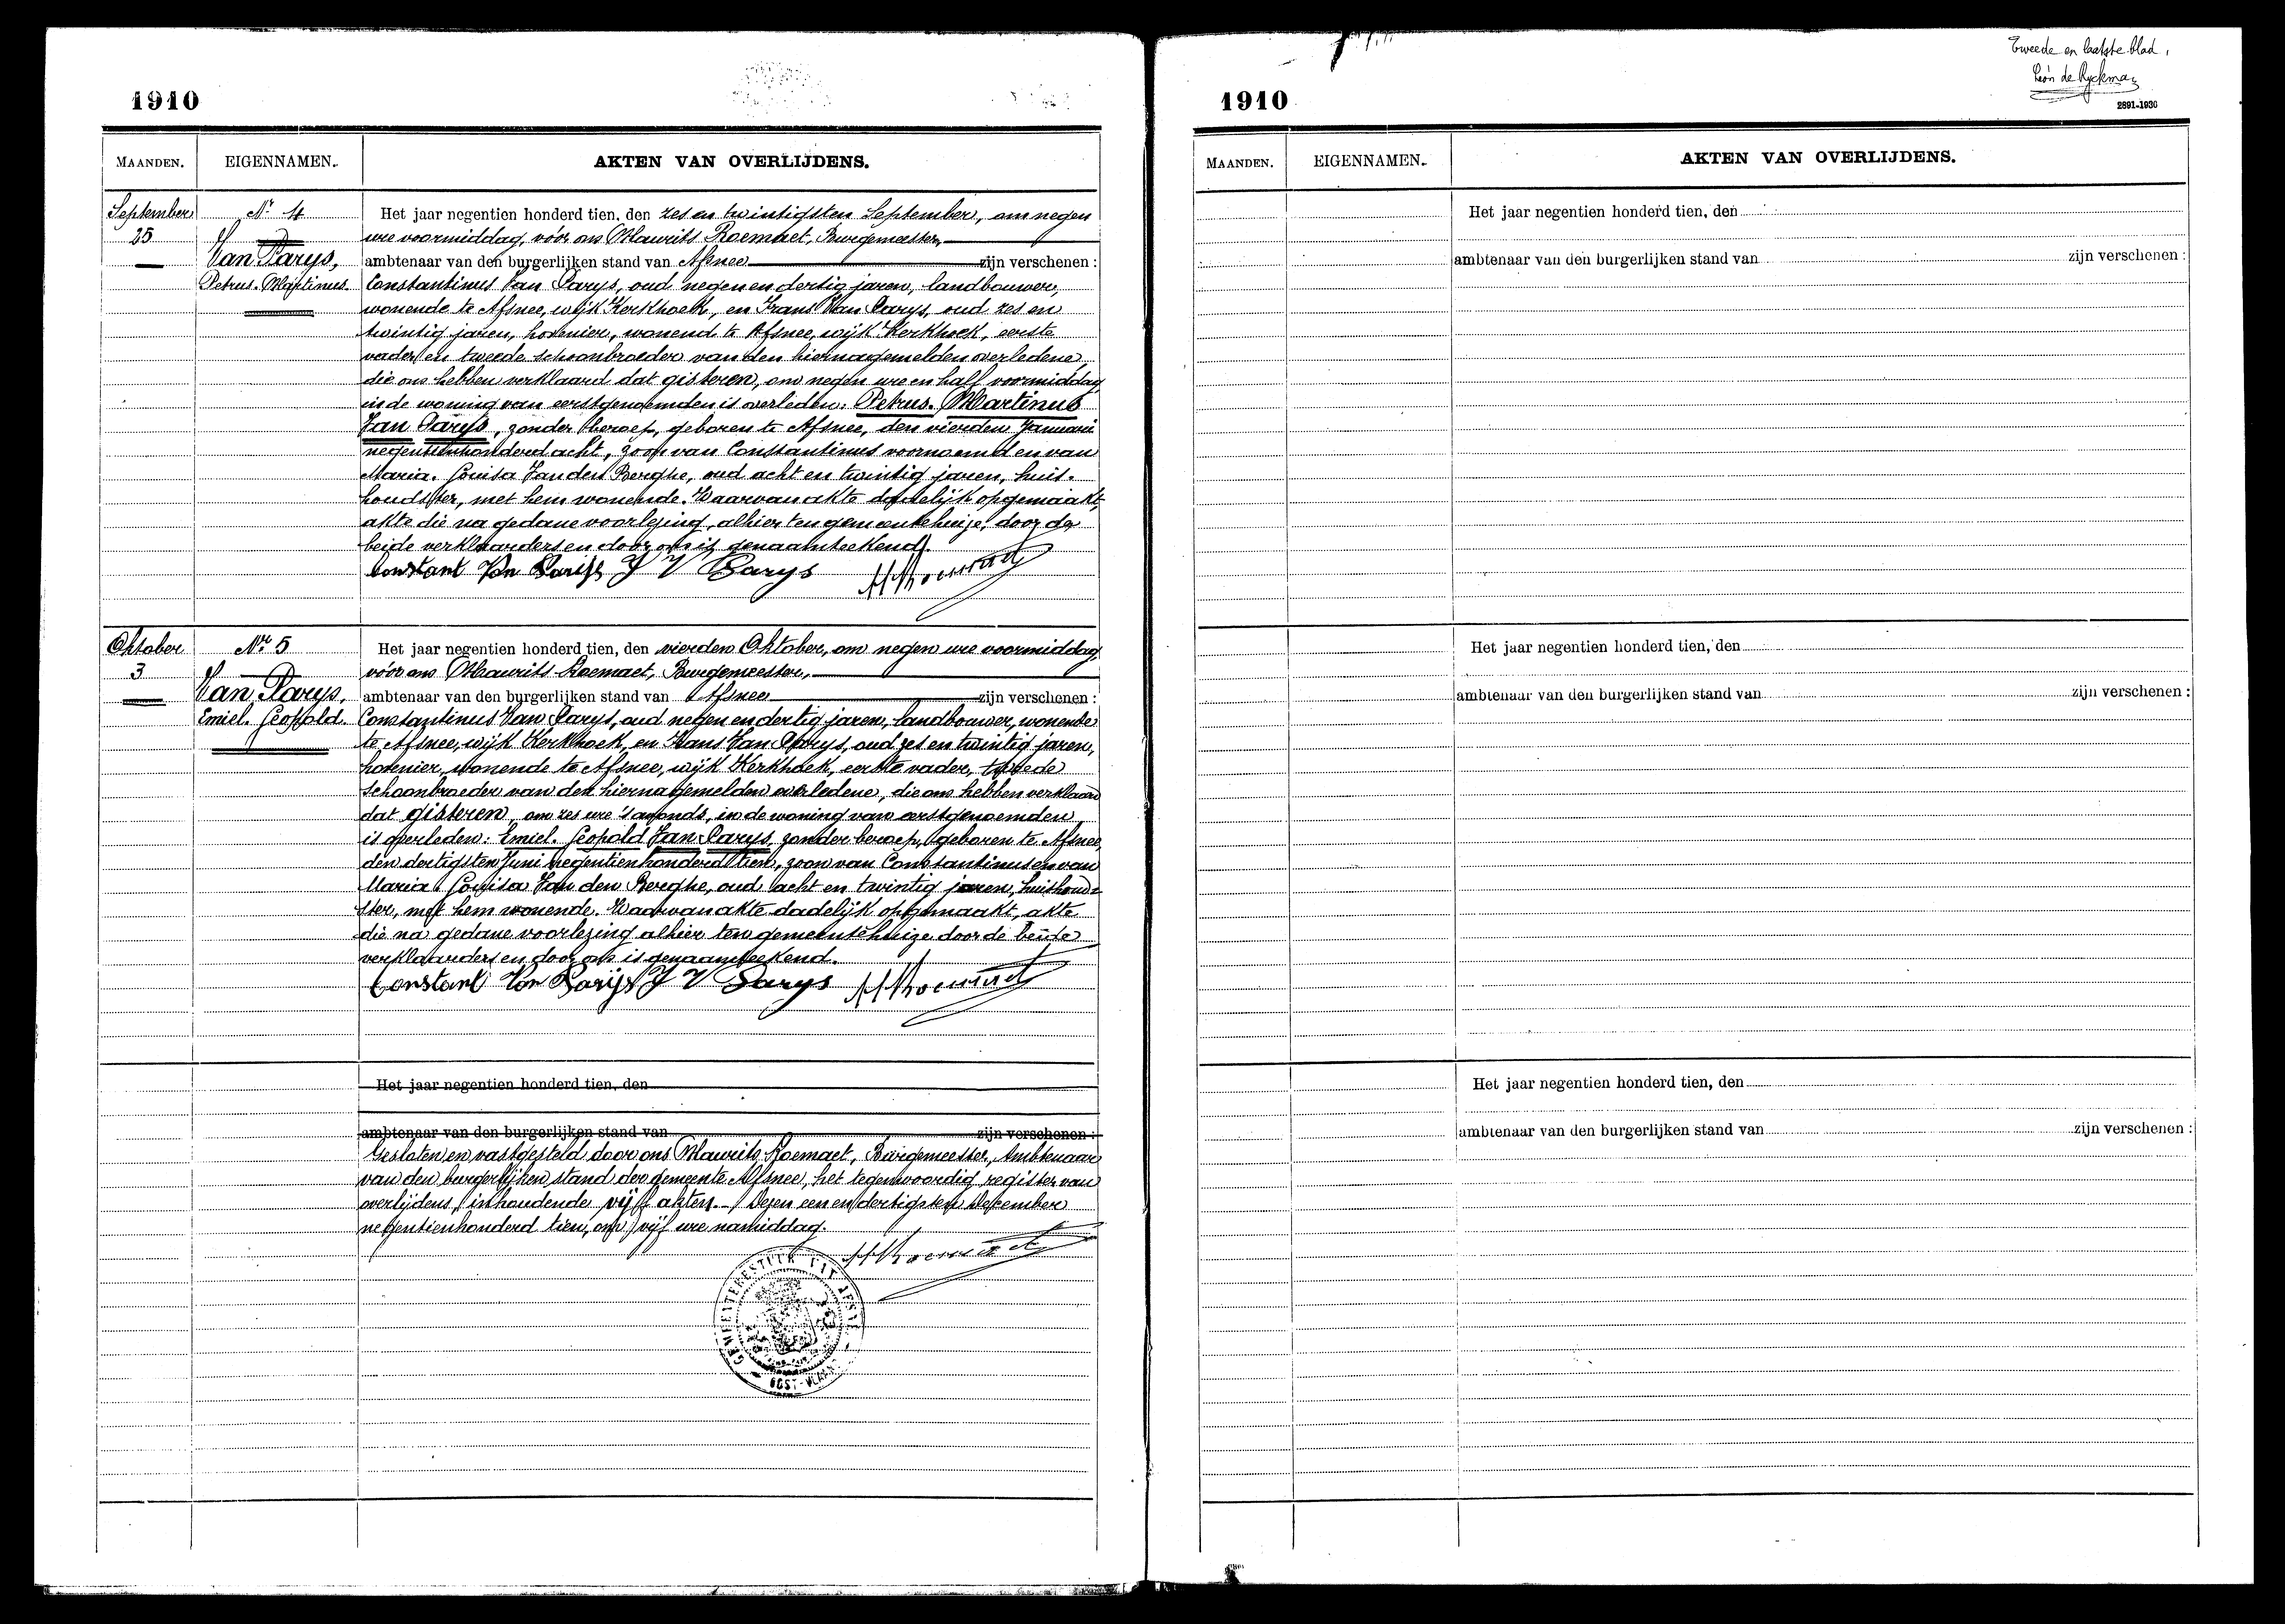 1910
MAANDEN. EIGENNAMEN. AKTEN VAN OVERLIJDENS.
September Nr 4 Het jaar negentien honderd tien, den zes en twintigsten September, om negen
25 ure voormiddag, vóór ons Maurits Roemaet, Burgemeester,
Van Parys, ambtenaar van den burgerlijken stand van Afsnee zijn verschenen :
Petrus-Martinus Constantinus Van Parys, oud negen en dertig jaren, landbouwer,
wonende te Afsnee, wijk Kerkhoek, en Frans Van Parys, oud zes en
twintig jaren, hovenier, wonend te Afsnee, wijk Kerkhoek, eerste
vader en tweede schoonbroeder van den hiernagemelden overledene,
die ons hebben verklaard dat gisteren, om negen ure en half voormiddag
in de woning van eerstgenoemden is overleden: Petrus-Martinus
Van Parys, zonder beroep, geboren te Afsnee, den vierden Januari
negentienhonderd acht, zoon van Constantinus voornoemd en van
Maria-Louisa Van den Berghe, oud acht en twintig jaren, huis-
houdster, met hem wonende. Waarvan akte dadelijk opgemaakt,
akte die na gedane voorlezing, alhier ten gemeentehuize, door de
beide verklaarders en door ons is genaamteekend.
Constant Van Parijs F V Parys MRoemaet
Oktober Nr 5 Het jaar negentien honderd tien, den vierden Oktober, om negen ure voormiddag
3 vóór ons Maurits Roemaet, Burgemeester,
Van Parys, ambtenaar van den burgerlijken stand van Afsnee zijn verschenen :
Emiel-Leopold. Constantinus Van Parys, oud negen en dertig jaren, landbouwer, wonende
te Afsnee, wijk Kerkhoek, en Frans Van Parys, oud zes en twintig jaren,
hovenier, wonende te Afsnee, wijk Kerkhoek, eerste vader, tweede
schoonbroeder van den hiernagemelden overledene, die ons hebben verklaard
dat gisteren, om zes ure 's avonds, in de woning van eerstgenoemden
is overleden: Emiel-Leopold Van Parys, zonder beroep, geboren te Afsnee,
den dertigsten Juni negentienhonderd tien, zoon van Constantinus en van
Maria-Louisa Van den Berghe, oud acht en twintig jaren, huishoud-
ster, met hem wonende. Waarvan akte dadelijk opgemaakt, akte
die na gedane voorlezing alhier ten gemeentehuize door de beide
verklaarders en door ons is genaamteekend.
Constant Van Parijs F V Parys MRoemaet
Het jaar negentien honderd tien, den
ambtenaar van den burgerlijken stand van zijn verschenen :
Gesloten en vastgesteld door ons Maurits Roemaet, Burgemeester, Ambtenaar
van den burgerlijken stand der gemeente Afsnee, het tegenwoordig register van
overlijdens, inhoudende vijf akten. Dezen een en dertigsten December
negentienhonderd tien, om vijf ure namiddag.
MRoemaet
GEMEENTEBESTUUR VAN AFSNEE
OOST-VLAAN
Tweede en laatste blad,
Léon de Ryckman
2891-1930
1910
MAANDEN. EIGENNAMEN. AKTEN VAN OVERLIJDENS.
Het jaar negentien honderd tien, den
ambtenaar van den burgerlijken stand van zijn verschenen :
Het jaar negentien honderd tien, den
ambtenaar van den burgerlijken stand van zijn verschenen :
Het jaar negentien honderd tien, den
ambtenaar van den burgerlijken stand van zijn verschenen :